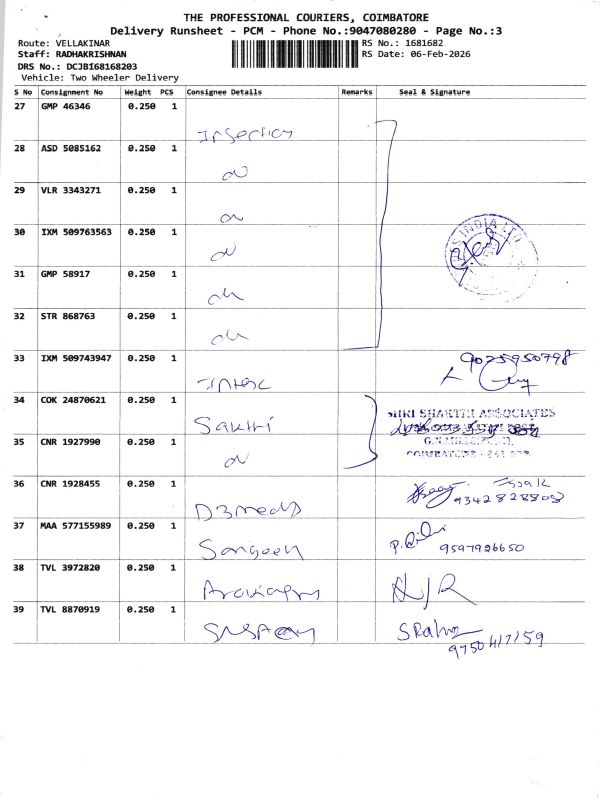 THE PROFESSIONAL COURIERS, COIMBATORE
Delivery Runsheet - PCM - Phone No.:9047080280 - Page No.:3
Route: VELLAKINAR
RS No.: 1681682
Staff: RADHAKRISHNAN
RS Date: 06-Feb-2026
DRS No.: DCJB168168203
Vehicle: Two Wheeler Delivery
S No Consignment No Weight PCS Consignee Details Remarks Seal & Signature
27 GMP 46346 0.250 1
28 ASD 5085162 0.250 1
29 VLR 3343271 0.250 1
30 IXM 509763563 0.250 1
INDIA LTD
31 GMP 58917 0.250 1
32 STR 868763 0.250 1
33 IXM 509743947 0.250 1
9025950798
34 COK 24870621 0.250 1
Sakthi
SHRI SHAKTHI ASSOCIATES
35 CNR 1927990 0.250 1
COIMBATORE
36 CNR 1928455 0.250 1
D3meds
9342828808
37 MAA 577155989 0.250 1
Sangeeth
9597926650
38 TVL 3972820 0.250 1
N/R
39 TVL 8870919 0.250 1